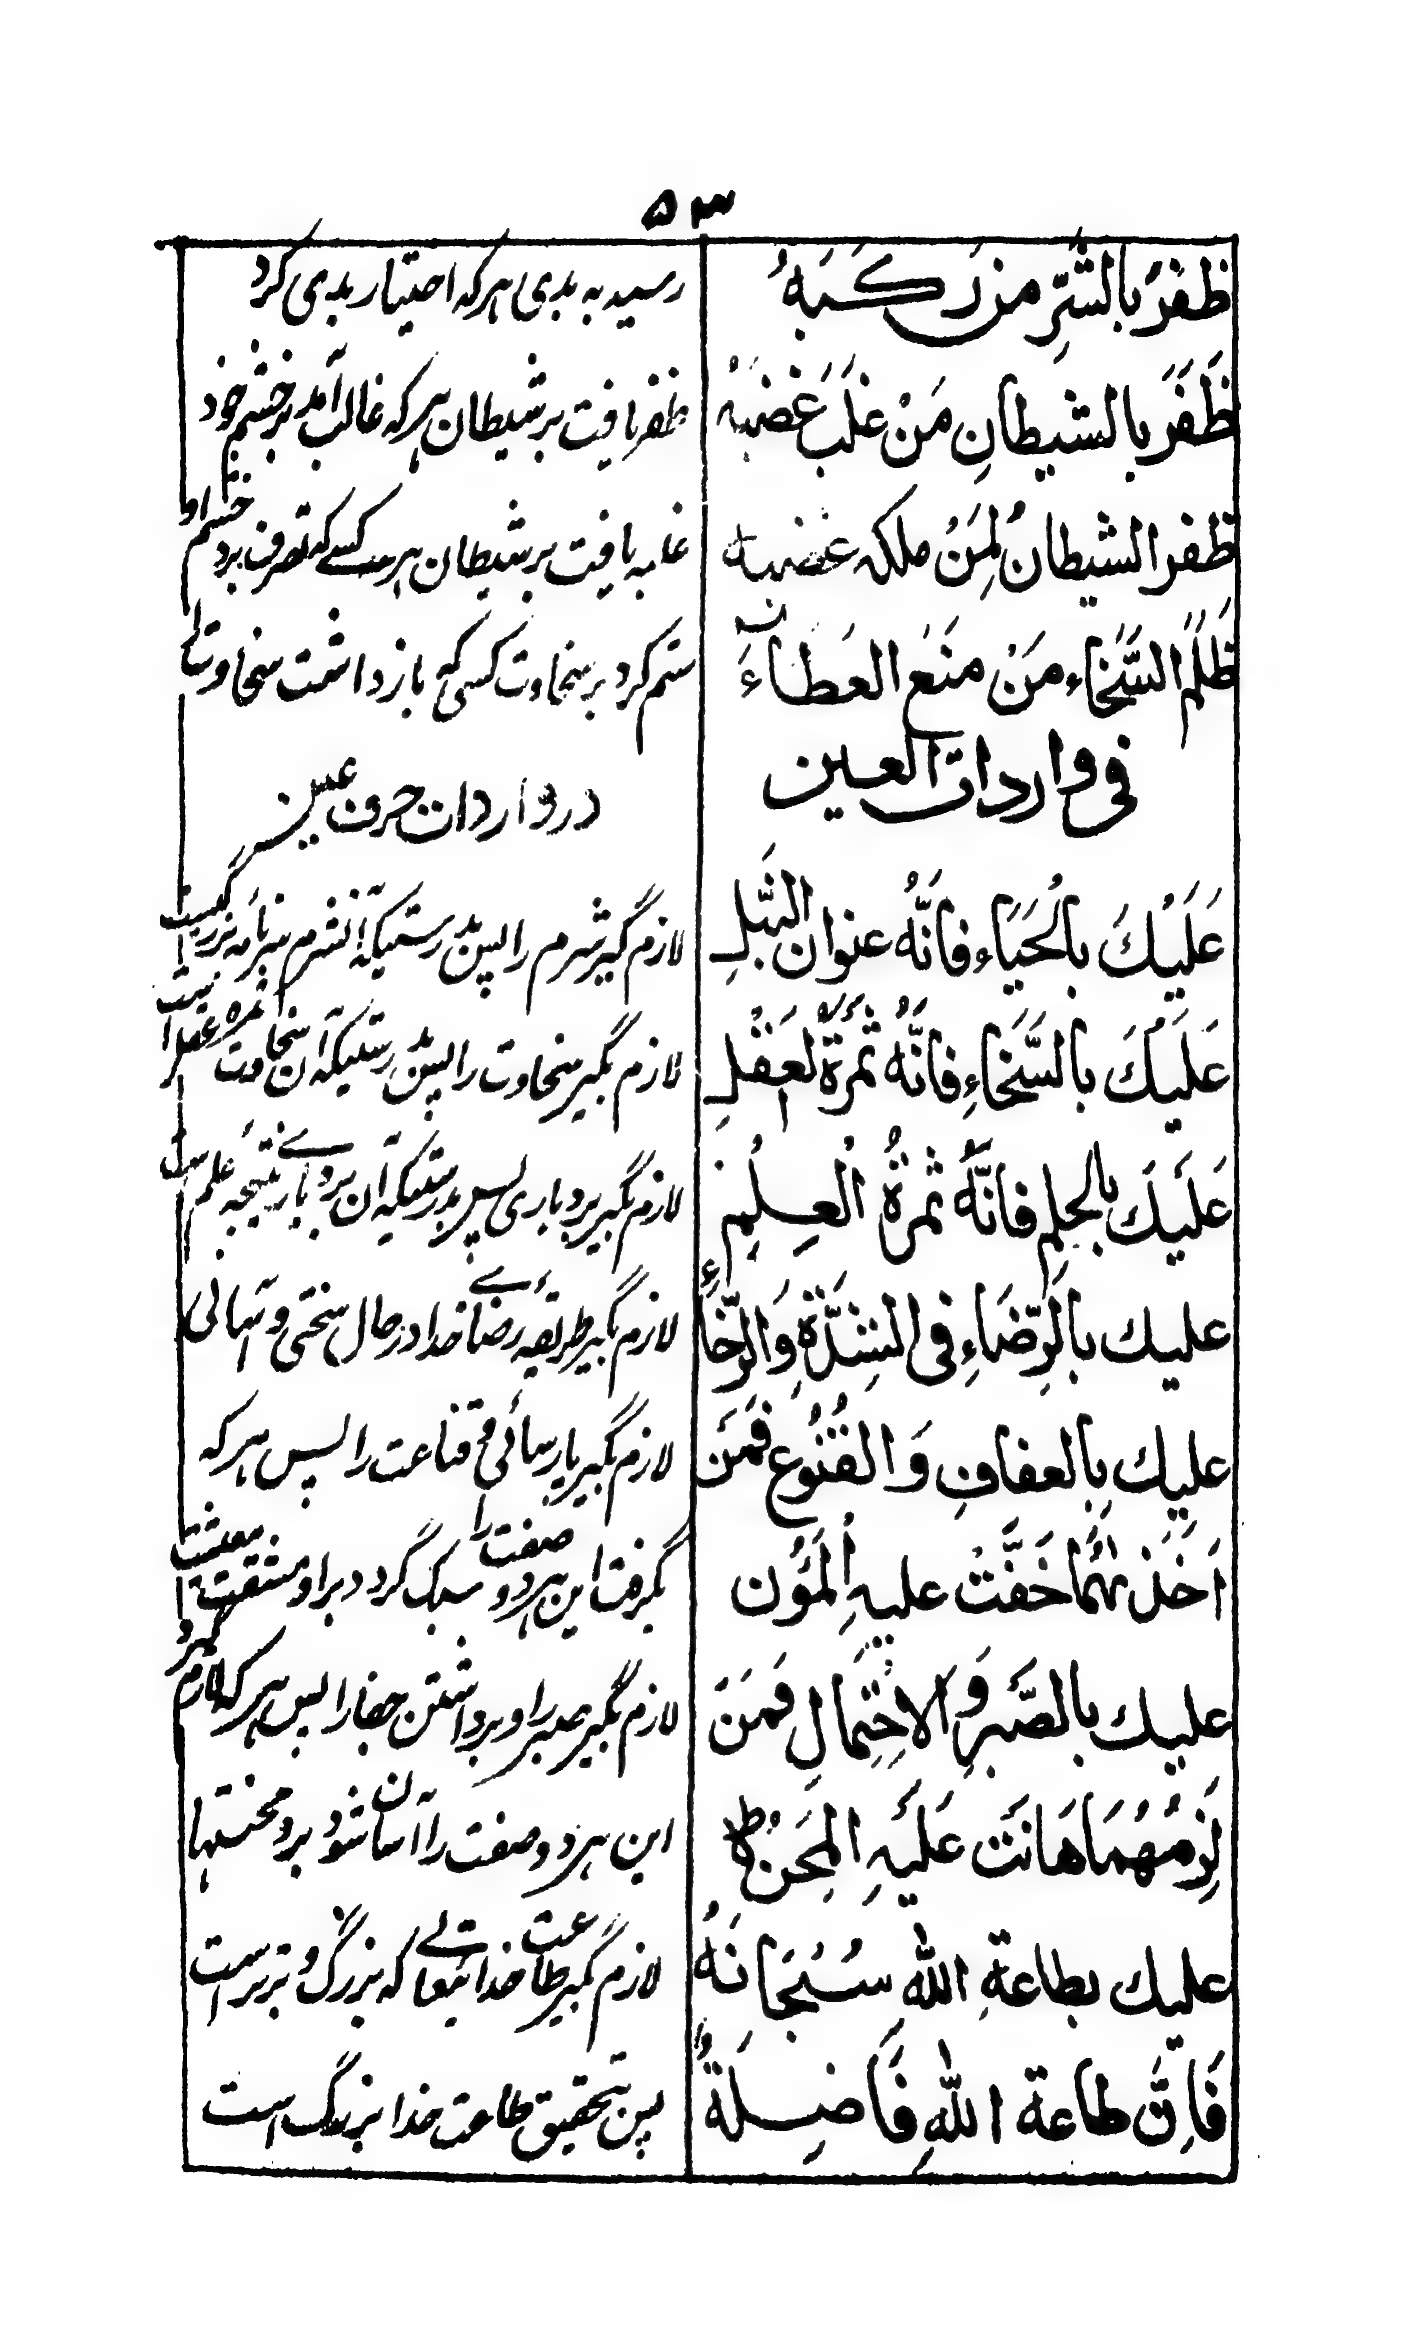 ۵۳
ظَفَرَ بالشَّرِّ من رَكَبَهُ
رسید به بدی هر که اختیار بدی کرد
ظَفَرَ بالشيطانِ مَنْ غلَبَ غَضَبَهُ
ظفر یافت بر شیطان هر که غالب آمد بر خشم خود
ظفر الشيطانُ لِمَنْ ملكه غضبه
غلبه یافت بر شیطان هر کسے که تصرف برد خشم او
ظَلَمَ السَّخَاء مَنْ منَعَ العَطاءَ
ستم کرد بر سخاوت کسی که بازداشت سخاوت
فی واردات العین
در واردات حرف عین
عَلَيْكَ بالْحَيَاء فانَّهُ عنوان النَّبلِ
لازم گیر شرم را پس بدرستیکه آنشرم سرنامه بزرگیست
عَلَيْكَ بالسَّخَاءِ فانَّهُ ثمَرَةُ العَقْلِ
لازم بگیر سخاوت را پس بدرستیکه آن سخاوت ثمره عقل است
عَلَيْكَ بالحلم فانَّهُ ثمرةُ الْعِلْمِ
لازم بگیر بردباری پس بدرستیکه آن بردبارے نتیجه علم است
عليك بالرِّضَاءِ فی الشِدَّةِ وَالرّخَاءِ
لازم بگیر طریقه رضاے خدا در حال سختی و آسانی
عليك بِالعفافِ وَالقُنُوع فَمَن
لازم بگیر پارسائی و قناعت را پس هر که
اَخَذَ بهُما خَفَّتْ عليهِ الْمُؤَن
بگرفت این هر دو صفت را سبک گردد بر او مشقتهای معیشت
عليك بالصَّبرِ وَ الاحْتِمَالِ فَمَنْ
لازم بگیر صبر را و برداشتن جفا را پس هر که لازم گیرد
لَزِمَهُمَا هَانَت عَلَيهِ المِحَنُ
این هر دو صفت را آسان شود برو محنتها
عليك بطاعةِ اللهِ سُبْحَانَهُ
لازم بگیر طاعت خدایتعالے که بزرگ و برتر است
فَاِنَّ طاعة اللهِ فَاضِلَةٌ
پس بتحقیق طاعت خدا بزرگ است